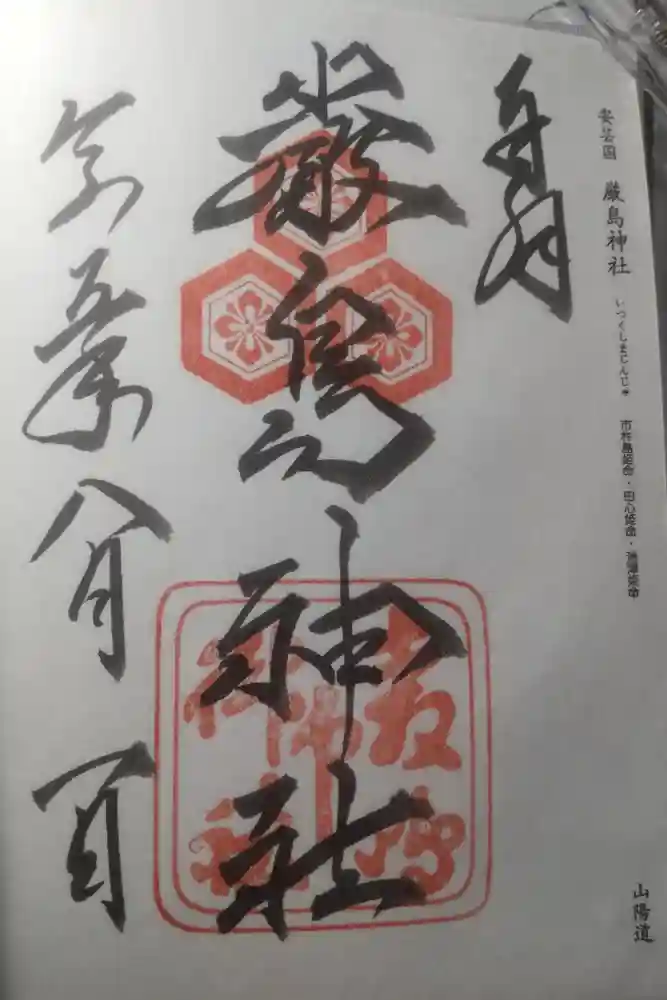 安芸国 厳島神社 いつくしまじんじゃ 市杵島姫命・田心姫命・湍津姫命 山陽道
奉拝
嚴島神社
令和五年八月一日